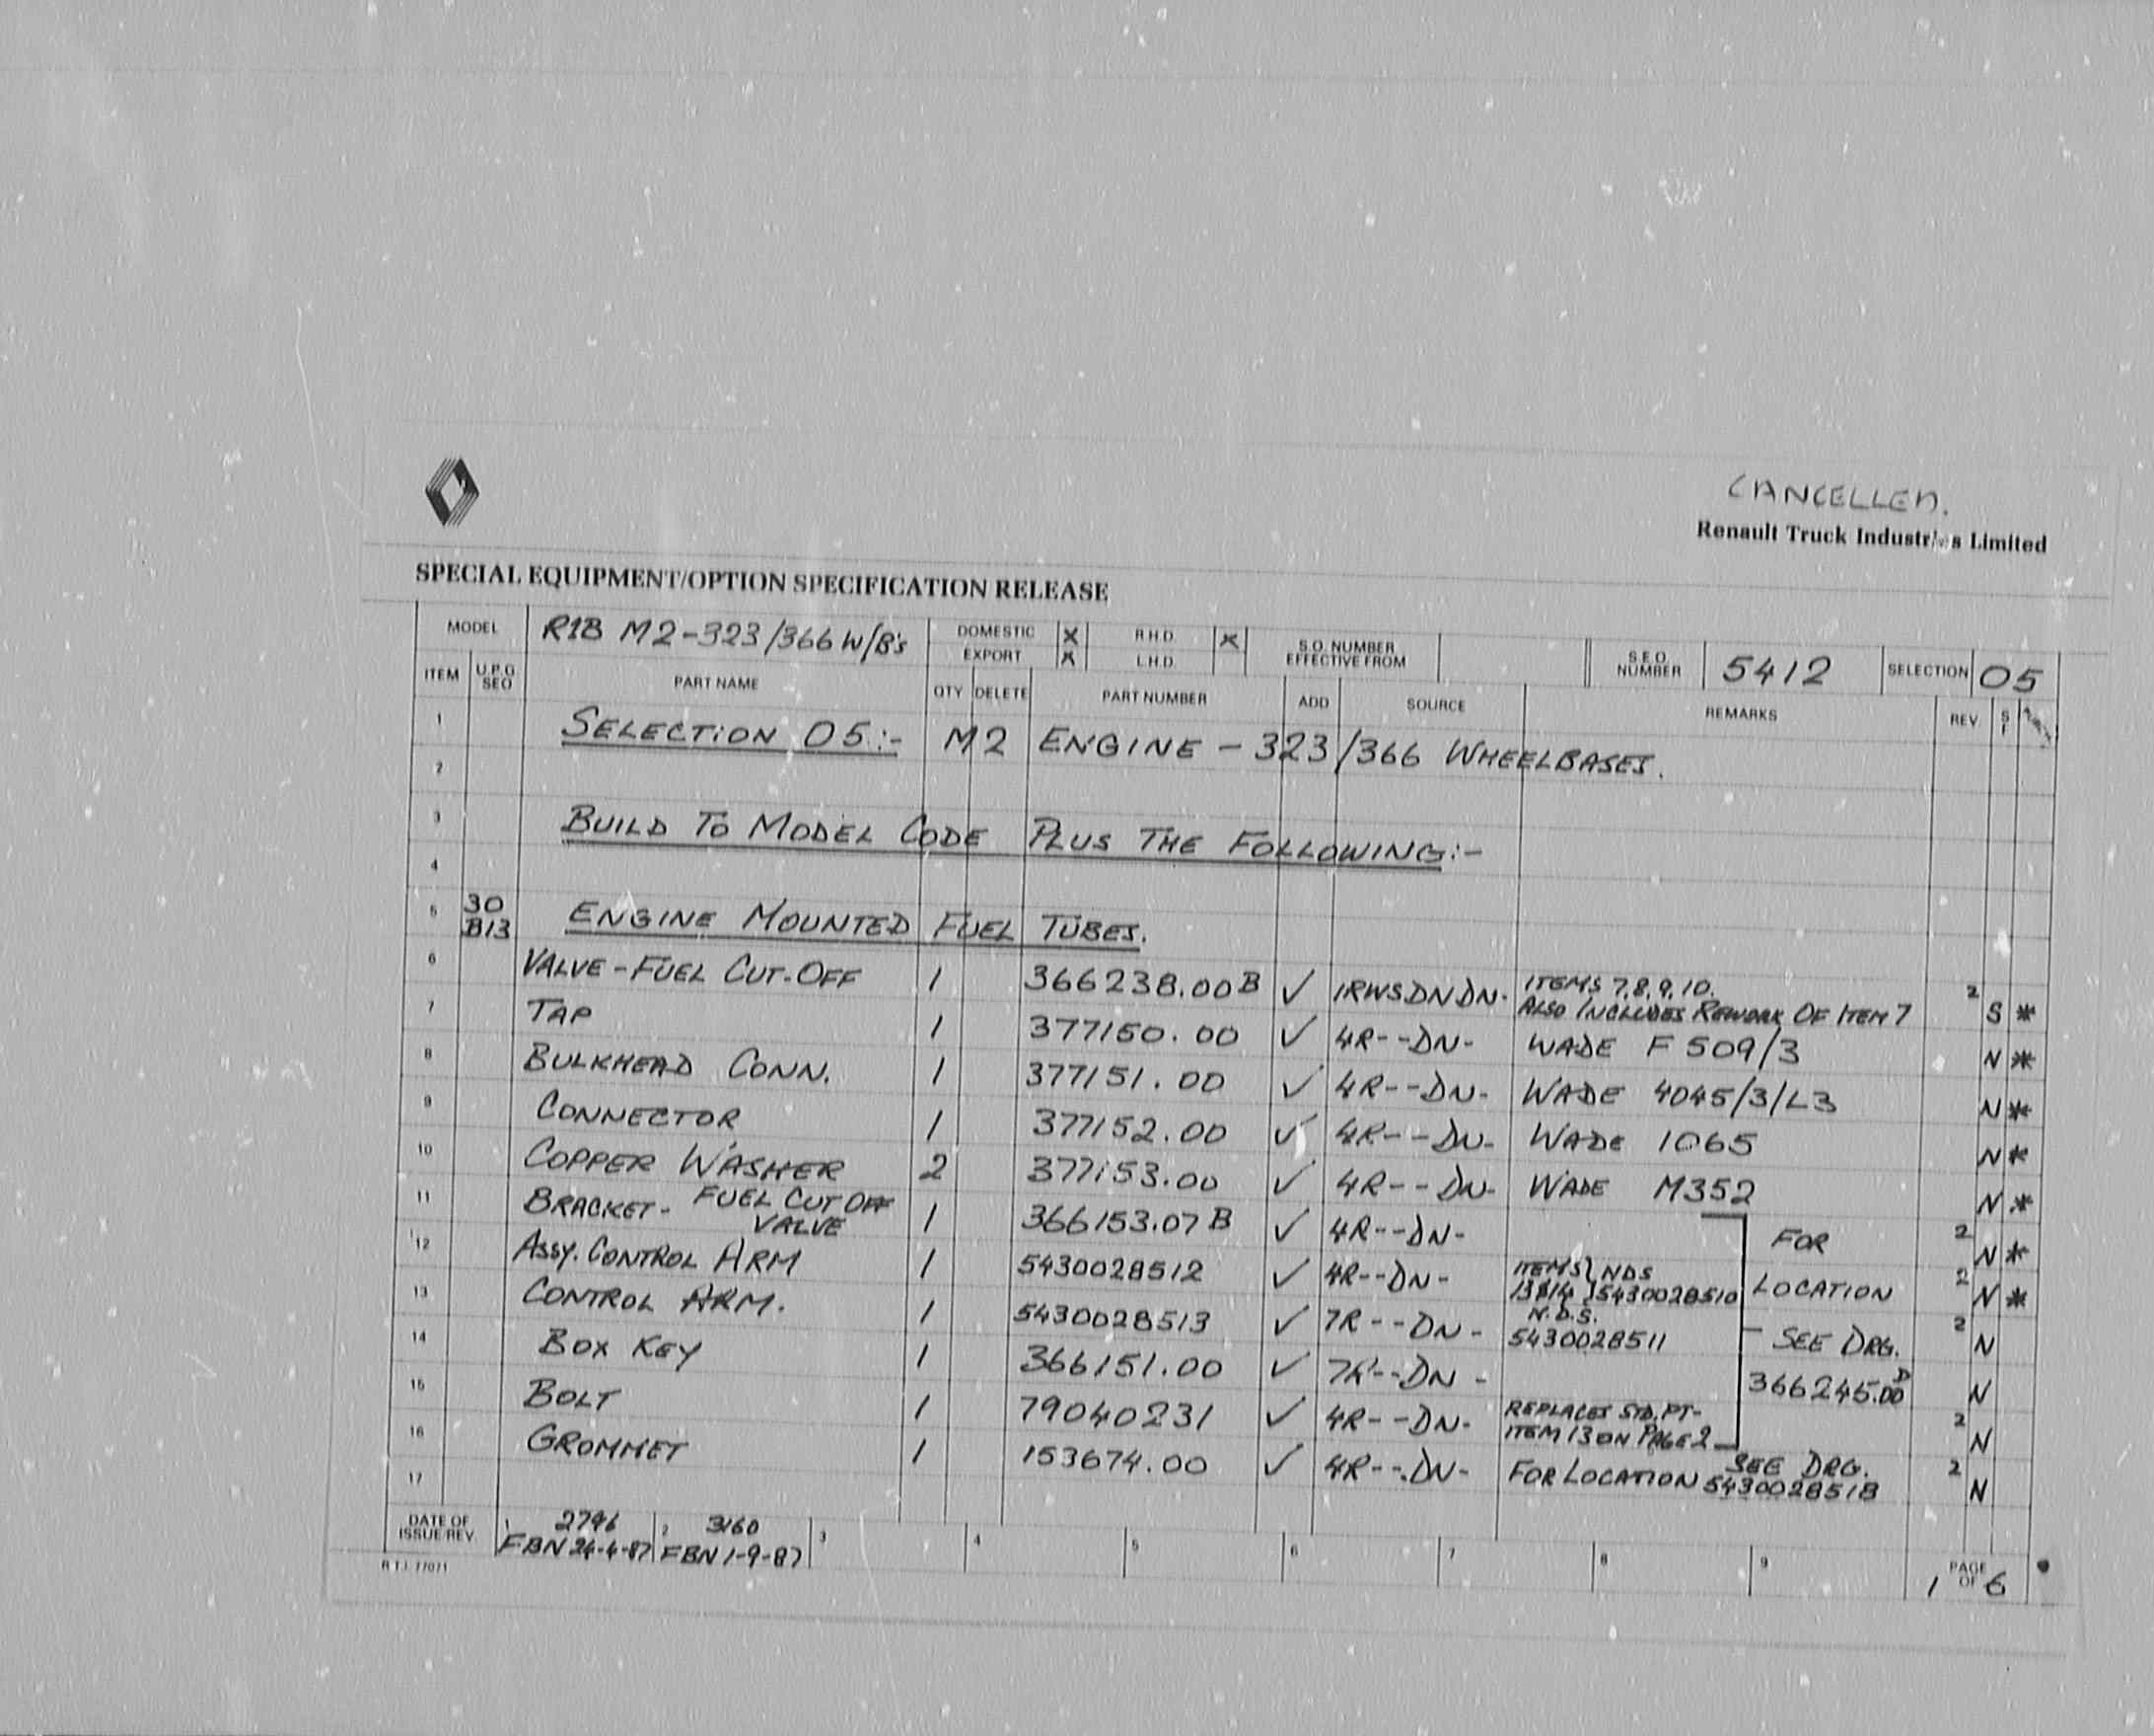 CANCELLED.
Renault Truck Industries Limited
SPECIAL EQUIPMENT/OPTION SPECIFICATION RELEASE
MODEL R1B M2-323/366 W/B's DOMESTIC X R.H.D. X S.O. NUMBER EFFECTIVE FROM S.E.O. NUMBER 5412 SELECTION 05
EXPORT X L.H.D.
ITEM U.P.G SEQ PART NAME QTY DELETE PART NUMBER ADD SOURCE REMARKS REV S I
1 SELECTION 05:- M2 ENGINE - 323/366 WHEELBASES.
2
3 BUILD TO MODEL CODE PLUS THE FOLLOWING:-
4
5 30 B13 ENGINE MOUNTED FUEL TUBES.
6 VALVE - FUEL CUT-OFF 1 366238.00B ✓ 1RWSDNDN- ITEMS 7,8,9,10. ALSO INCLUDES REWORK OF ITEM 7 2 S *
7 TAP 1 377150.00 ✓ 4R--DN- WADE F509/3 N *
8 BULKHEAD CONN. 1 377151.00 ✓ 4R--DN- WADE 4045/3/L3 N *
9 CONNECTOR 1 377152.00 ✓ 4R--DN- WADE 1065 N *
10 COPPER WASHER 2 377153.00 ✓ 4R--DN- WADE M352 N *
11 BRACKET - FUEL CUT OFF VALVE 1 366153.07B ✓ 4R--DN- FOR 2 N *
12 ASSY. CONTROL ARM 1 5430028512 ✓ 4R--DN- ITEMS 13 & 14 } NDS 5430028510 LOCATION 2 N *
13 CONTROL ARM. 1 5430028513 ✓ 7R--DN- N.D.S. 5430028511 - SEE DRG. 2 N
14 BOX KEY 1 366151.00 ✓ 7R--DN- 366245.00D N
15 BOLT 1 79040231 ✓ 4R--DN- REPLACES STD. PT- ITEM 13 ON PAGE 2 2 N
16 GROMMET 1 153674.00 ✓ 4R--DN- FOR LOCATION SEE DRG. 5430028518 2 N
17
DATE OF ISSUE/REV. 1 2796 FBN 24-4-87 2 3160 FBN 1-9-87 3 4 5 6 7 8 9 PAGE 1 OF 6
R.T.I. 77071